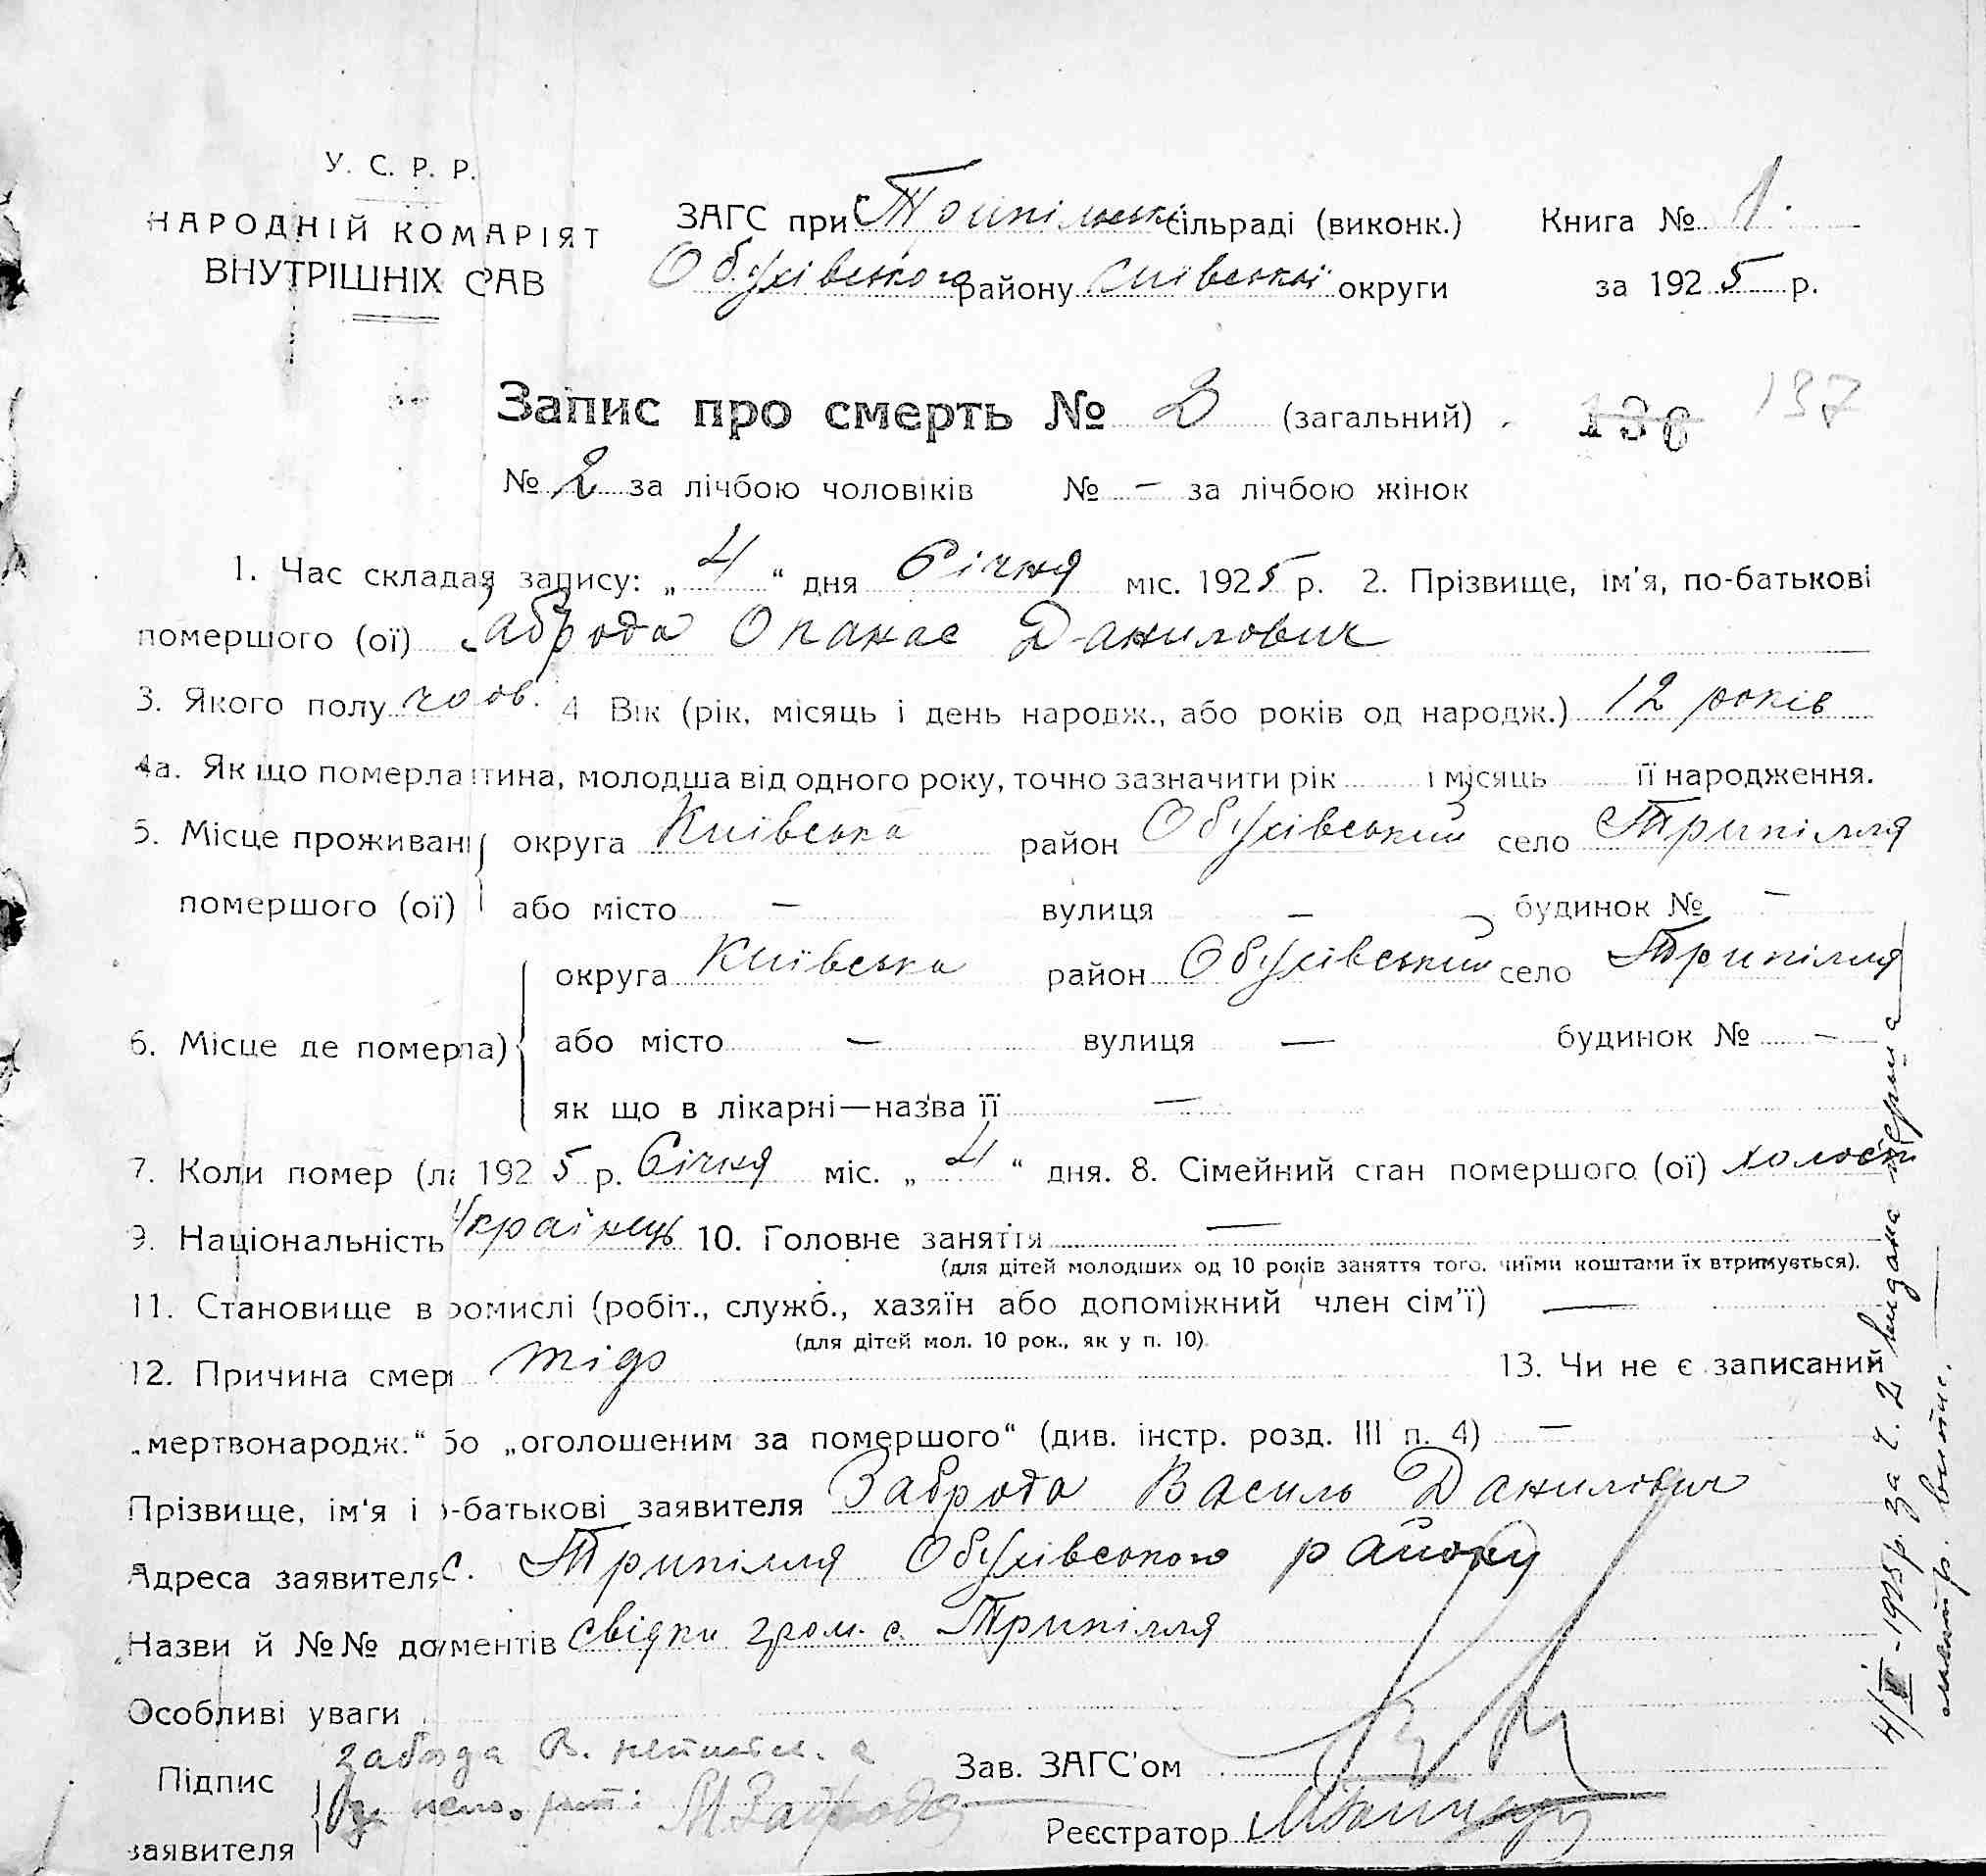 У. С. Р. Р.
НАРОДНІЙ КОМАРІЯТ
ВНУТРІШНІХ СПРАВ
ЗАГС при Трипільські сільраді (виконк.)
Обухівського району Київської округи
Книга № 1.
за 1925 р.
Запис про смерть № 3 (загальний) 136 137
№ 2 за лічбою чоловіків № — за лічбою жінок
1. Час складая запису: „4“ дня Січня міс. 1925 р. 2. Прізвище, ім'я, по-батькові
помершого (ої) Заброда Опанас Данилович
3. Якого полу чолов. 4 Вік (рік, місяць і день народж., або років од народж.) 12 років
4а. Як що померла тина, молодша від одного року, точно зазначити рік і місяць її народження.
5. Місце проживан округа Київська район Обухівський село Трипілля
помершого (ої) або місто — вулиця — будинок № —
округа Київська район Обухівський село Трипілля
6. Місце де померла) або місто — вулиця — будинок № —
як що в лікарні—назва її —
7. Коли помер (ла 1925 р. Січня міс. „4“ дня. 8. Сімейний стан помершого (ої) холост
9. Національність Українець 10. Головне заняття —
(для дітей молодших од 10 років заняття того, чиїми коштами їх втримується).
11. Становище в ромислі (робіт., служб., хазяїн або допоміжний член сім'ї) —
(для дітей мол. 10 рок., як у п. 10).
12. Причина смер тіф 13. Чи не є записаний
„мертвонародж.“ бо „оголошеним за помершого“ (див. інстр. розд. III п. 4) —
Прізвище, ім'я і о-батькові заявителя Заброда Василь Данилович
Адреса заявителя с. Трипілля Обухівського району
Назви й №№ документів свідки гром. с. Трипілля
Особливі уваги
Підпис заявителя Заброда В. М Заброда
Зав. ЗАГС'ом
Реєстратор
4/II-1925 р. за ч. 2 видана перша